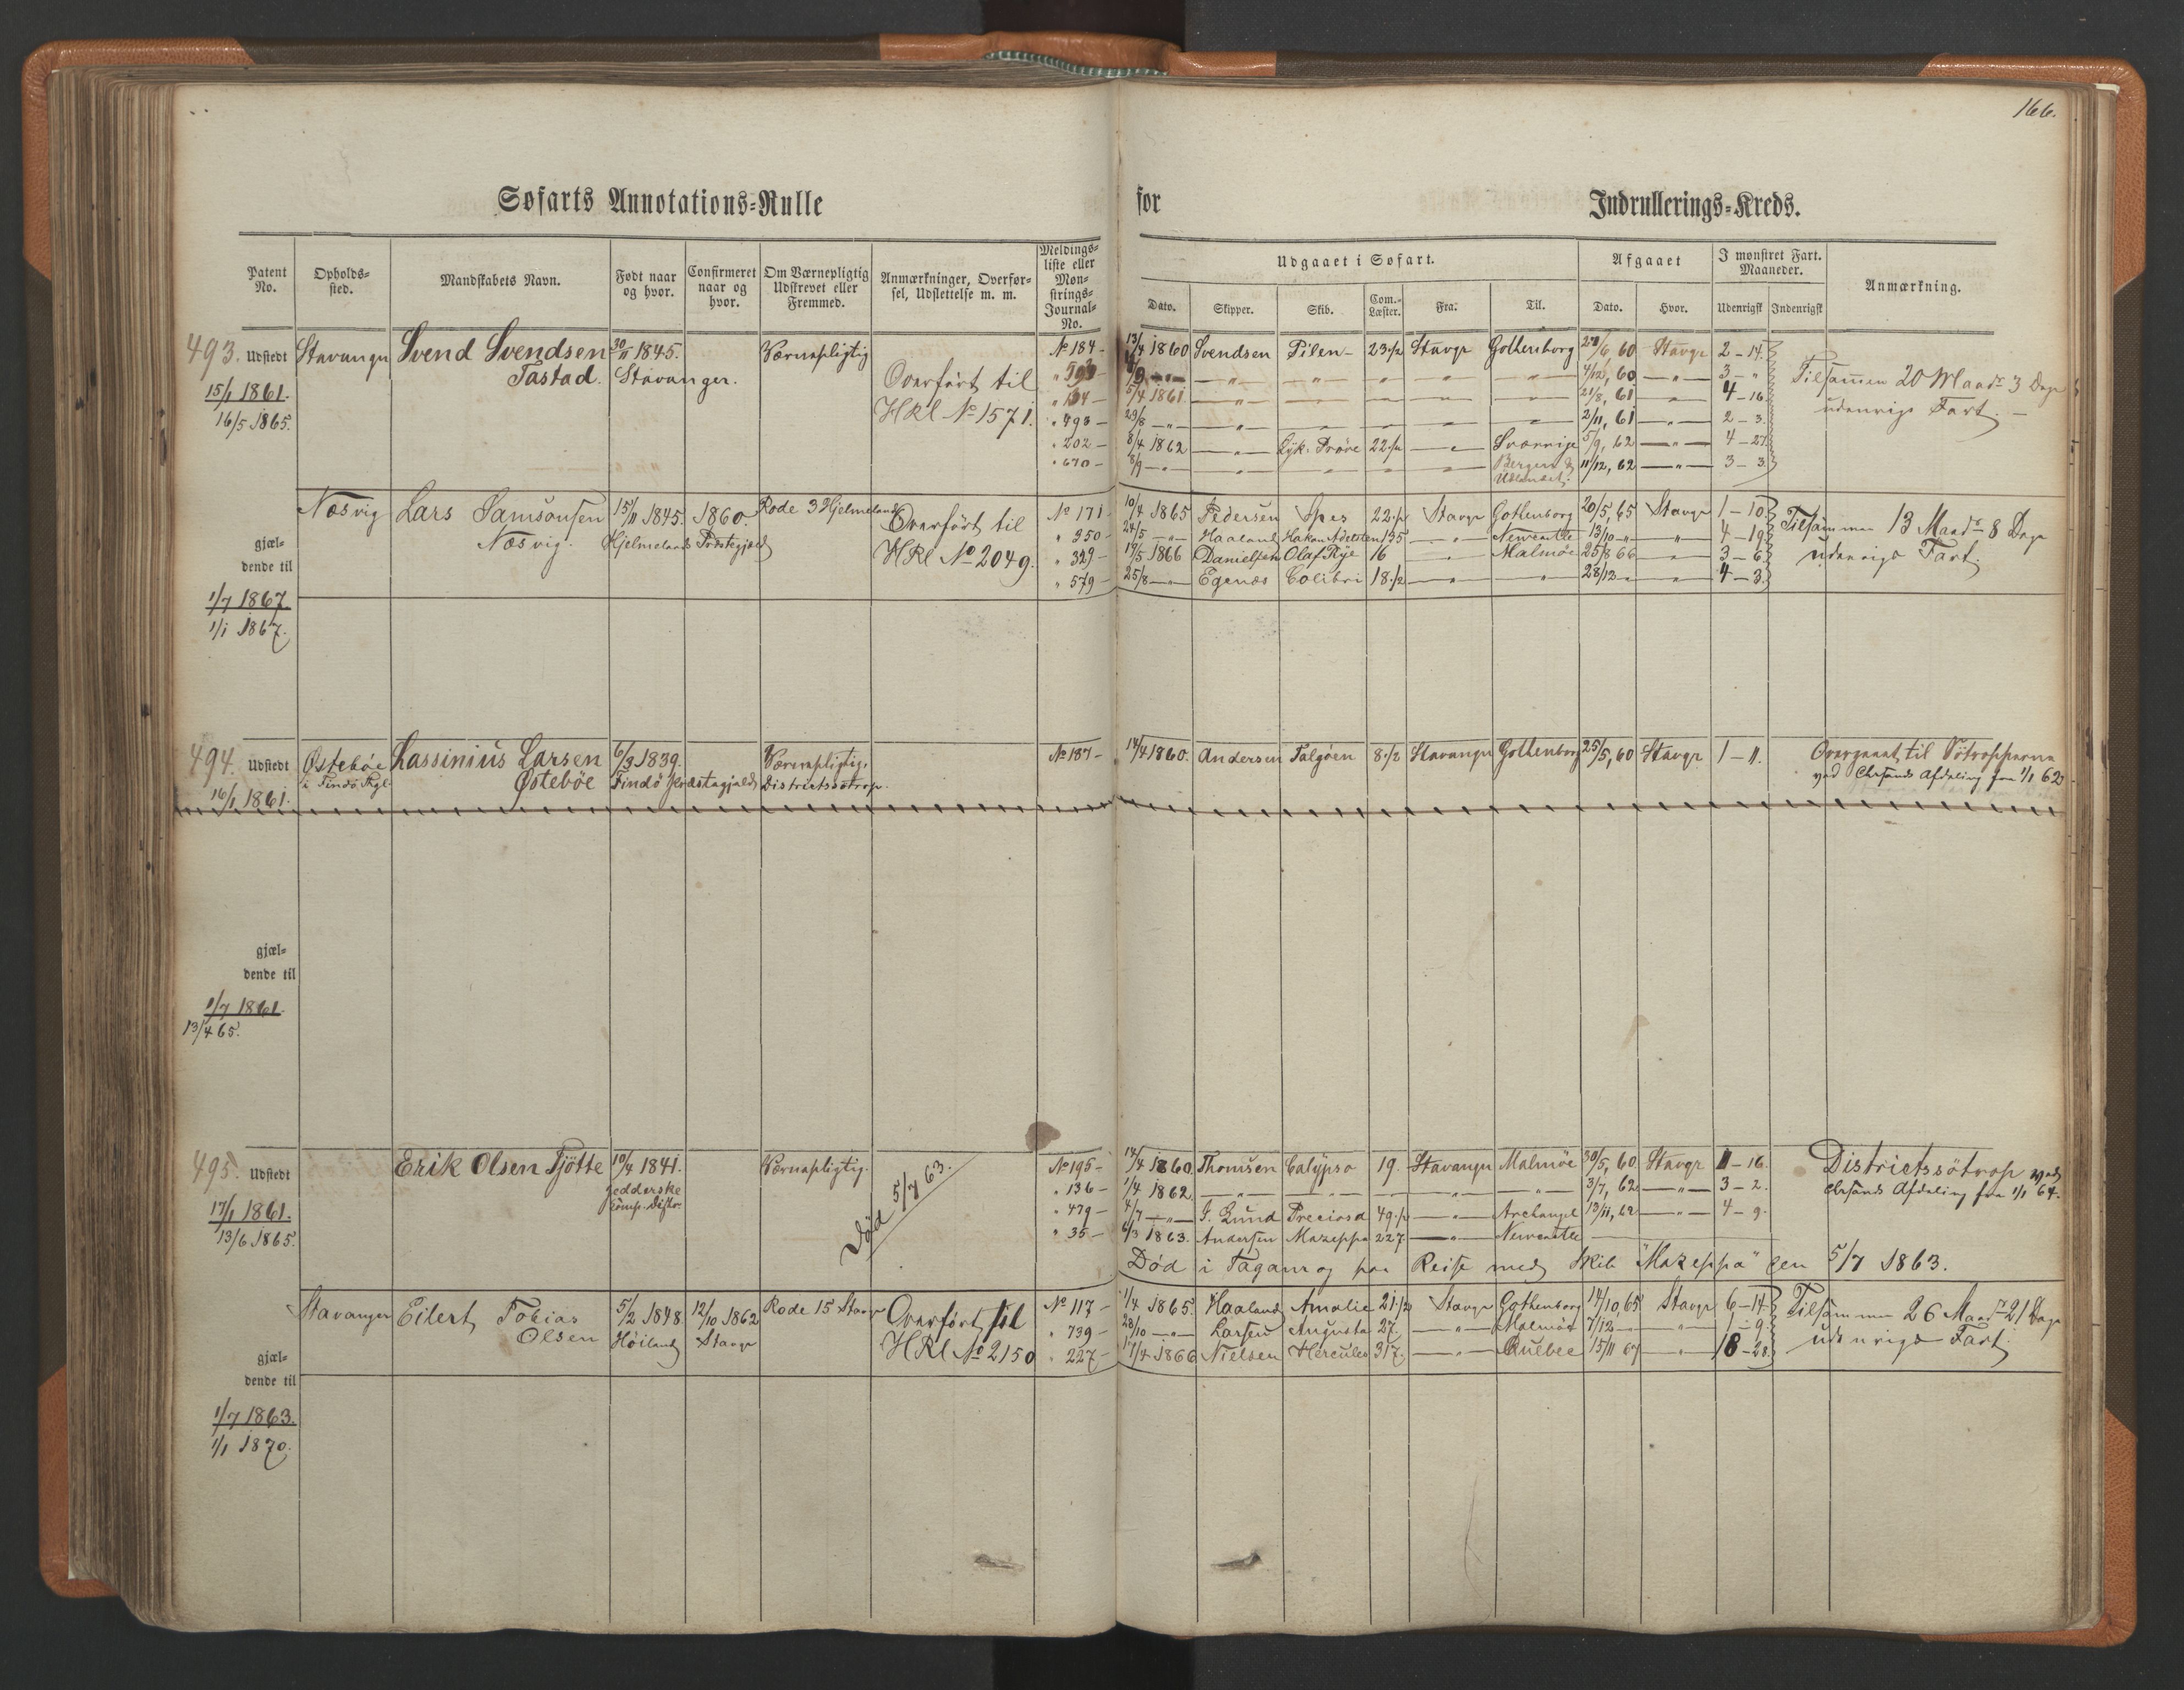 166.
Søfarts Annotations-Rulle for Indrullerings-Kreds.
Patent No. | Opholds-sted. | Mandskabets Navn. | Født naar og hvor. | Confirmeret naar og hvor. | Om Værnepligtig Udskrevet eller Fremmed. | Anmærkninger, Overførsel, Udslettelse m. m. | Meldings-liste eller Mønstrings-Journal-No. | Udgaaet i Søfart. | Afgaaet | I mønstret Fart. Maaneder. | Anmærkning.
Dato. | Skipper. | Skib. | Com.-Læster. | Fra: | Til. | Dato. | Hvor. | Udenrigsk | Indenrigsk
493. Udstedt Stavanger Svend Svendsen 30/11 1845. Værnepligtig No 184 - 13/4 1860 Svendsen Pilen - 23 1/2 Stavgr Gothenborg 28/6, 60 Stavgr 2 - 14.
15/1 1861. Tastad. Stavanger. Overført til 4/12, 60 3 - " Tilsammen 20 Maadr 3 Dage
16/5 1865. HRl No 1571. " 104 - 5/4 1861 21/8, 61 4 - 16. udenrigs Fart.
" 493 - 29/8 2/11, 61 2 - 3.
" 202 - 8/4 1862 Lyk. Prøve 22 1/2 Sverrige 5/9, 62 4 - 27.
" 670 - 8/9 Bergen & 11/12, 62 3 - 3.
Udlandet.
Næsvig Lars Samsonsen 15/11 1845. 1860. Rode 3 Hjelmeland Overført til No 171 10/4 1865 Pedersen Spes 22 1/2 Stavgr Gothenborg 20/5, 65 Stavgr 1 - 10 Tilsammen 13 Maadr 8 Dage
gjæl- Næsvig. Hjelmelands Præstegjæld " 350 - 24/5 Haaland Hakon Adelsten 135 Newcastle 13/10 4 - 19 udenrigs Fart.
dende til HRl No 2049. " 329 - 19/5 1866 Danielsen Olaf Rye 16 Malmøe 25/8 66 3 - 6
1/7 1867. " 579 - 25/8 Egenæs Colibri 18 1/2 28/12 4 - 3
1/1 1867.
494. Udstedt Østebøe Lassinius Larsen 6/3 1839. Værnepligtig, No 187 - 14/4 1860. Andersen Talgøen 8 1/2 Stavanger Gothenborg 25/5, 60 Stavgr 1 - 11. Overgaaet til Søtropperne
16/1 1861. i Findø Pgl. Østebøe Findø Præstegjæld Districtssøtrop. ved Chrsands Afdeling fra 1/1 62
gjæl-
dende til
1/7 1861.
13/4 65.
495. Udstedt Erik Olsen Tjøtte 10/4 1841. Værnepligtig. No 195 - 14/4 1860. Thomsen Calypso 19. Stavanger Malmøe 30/5, 60 Stavgr 1 - 16. Districtssøtrop ved
17/1 1861. Jedderske Død 5/7 63. " 136 - 1/4 1862. 3/7, 62 3 - 2. Chrsands Afdeling fra 1/1 64.
13/6 1865. Komp. Distr. " 479 - 4/7 J. Lund Preciosa 49 1/2 Archangel 13/11, 62 4 - 9.
" 35 - 6/3 1863. Andersen Mazeppa 227. Newcastle
Død i Taganrog paa Reise med Skib "Mazeppa" den 5/7 1863.
Stavanger Eilert Tobias 5/2 1848 12/10 1862 Rode 15 Stavgr Overført til No 117 - 1/4 1865. Haaland Amalie 21 1/2 Stavgr Gothenborg 14/10, 65 Stavgr 6 - 14 Tilsammen 26 Maadr 21 Dage
gjæl- Olsen Høiland Stavgr HRl No 2150 " 739 - 28/10 Larsen Augusta 27. Malmøe 7/12 1 - 9. udenrigs Fart.
dende til " 227 - 17/4 1866 Nielsen Hercules 317. Quebec 15/11 67 18 - 28.
1/7 1863.
1/1 1870.